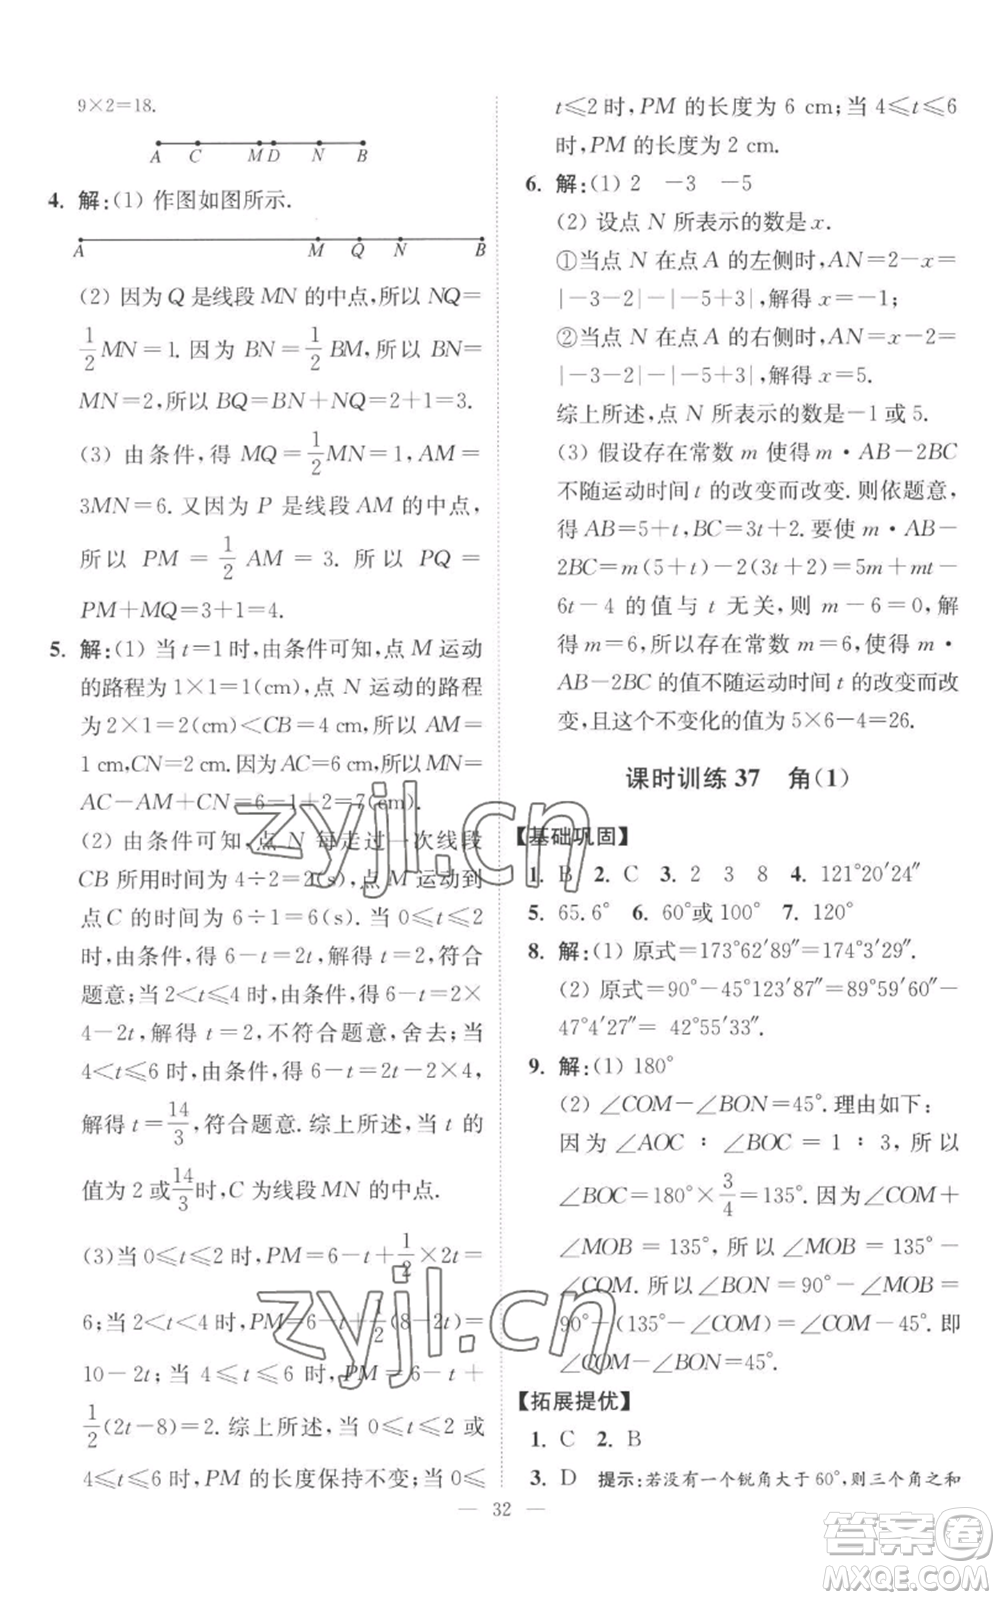 9×2=18.
A C M D N B
4. 解:(1) 作图如图所示.
A M Q N B
(2) 因为 Q 是线段 MN 的中点,所以 NQ=
1/2 MN=1. 因为 BN=1/2 BM,所以 BN=
MN=2,所以 BQ=BN+NQ=2+1=3.
(3) 由条件,得 MQ=1/2 MN=1,AM=
3MN=6. 又因为 P 是线段 AM 的中点,
所以 PM=1/2 AM=3. 所以 PQ=
PM+MQ=3+1=4.
5. 解:(1) 当 t=1 时,由条件可知,点 M 运动
的路程为 1×1=1(cm),点 N 运动的路程
为 2×1=2(cm)<CB=4 cm,所以 AM=
1 cm,CN=2 cm. 因为 AC=6 cm,所以 MN=
AC-AM+CN=6-1+2=7(cm).
(2) 由条件可知,点 N 每走过一次线段
CB 所用时间为 4÷2=2(s),点 M 运动到
点 C 的时间为 6÷1=6(s). 当 0≤t≤2
时,由条件,得 6-t=2t,解得 t=2,符合
题意;当 2<t≤4 时,由条件,得 6-t=2×
4-2t,解得 t=2,不符合题意,舍去;当
4<t≤6 时,由条件,得 6-t=2t-2×4,
解得 t=14/3,符合题意. 综上所述,当 t 的
值为 2 或 14/3 时,C 为线段 MN 的中点.
(3)当 0≤t≤2 时,PM=6-t+1/2×2t=
6;当 2<t<4 时,PM=6-t+1/2(8-2t)=
10-2t;当 4≤t≤6 时,PM=6-t+
1/2(2t-8)=2. 综上所述,当 0≤t≤2 或
4≤t≤6 时,PM 的长度保持不变;当 0≤
t≤2 时,PM 的长度为 6 cm;当 4≤t≤6
时,PM 的长度为 2 cm.
6. 解:(1) 2 -3 -5
(2) 设点 N 所表示的数是 x.
①当点 N 在点 A 的左侧时,AN=2-x=
|-3-2|-|-5+3|,解得 x=-1;
②当点 N 在点 A 的右侧时,AN=x-2=
|-3-2|-|-5+3|,解得 x=5.
综上所述,点 N 所表示的数是-1 或 5.
(3) 假设存在常数 m 使得 m·AB-2BC
不随运动时间 t 的改变而改变. 则依题意,
得 AB=5+t,BC=3t+2. 要使 m·AB-
2BC=m(5+t)-2(3t+2)=5m+mt-
6t-4 的值与 t 无关,则 m-6=0,解
得 m=6,所以存在常数 m=6,使得 m·
AB-2BC 的值不随运动时间 t 的改变而改
变,且这个不变化的值为 5×6-4=26.
课时训练 37 角(1)
【基础巩固】
1. B 2. C 3. 2 3 8 4. 121°20′24″
5. 65.6° 6. 60°或 100° 7. 120°
8. 解:(1) 原式=173°62′89″=174°3′29″.
(2) 原式=90°-45°123′87″=89°59′60″-
47°4′27″= 42°55′33″.
9. 解:(1) 180°
(2) ∠COM-∠BON=45°. 理由如下:
因为 ∠AOC∶∠BOC=1∶3,所以
∠BOC=180°×3/4=135°. 因为∠COM+
∠MOB=135°,所以∠MOB=135°-
∠COM. 所以∠BON=90°-∠MOB=
90°-(135°-∠COM)=∠COM-45°. 即
∠COM-∠BON=45°.
【拓展提优】
1. C 2. B
3. D 提示:若没有一个锐角大于 60°,则三个角之和
— 32 —
zyjl.cn
zyjl.cn
答案圈
MXQE.COM